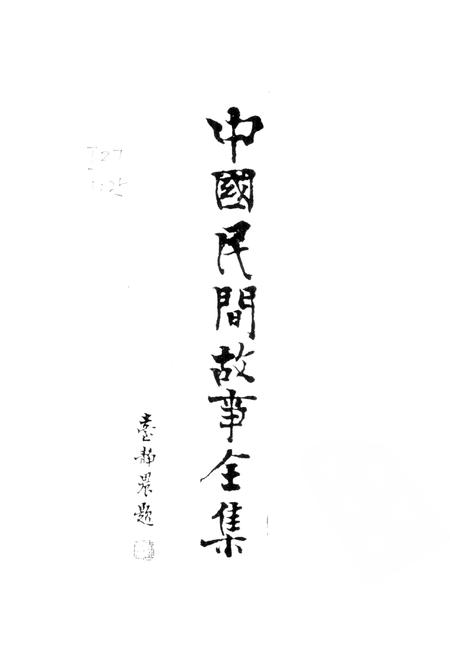 中國民間故事全集
臺靜農題